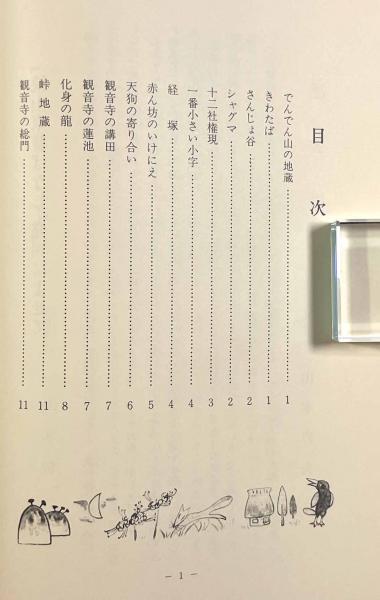 目次
でんでん山の地蔵……1
きわたば……1
さんじょ谷……2
シャグマ……2
十二社権現……3
一番小さい小字……4
経塚……4
赤ん坊のいけにえ……5
天狗の寄り合い……6
観音寺の講田……7
観音寺の蓮池……7
化身の龍……8
峠地蔵……11
観音寺の総門……11
− 1 −